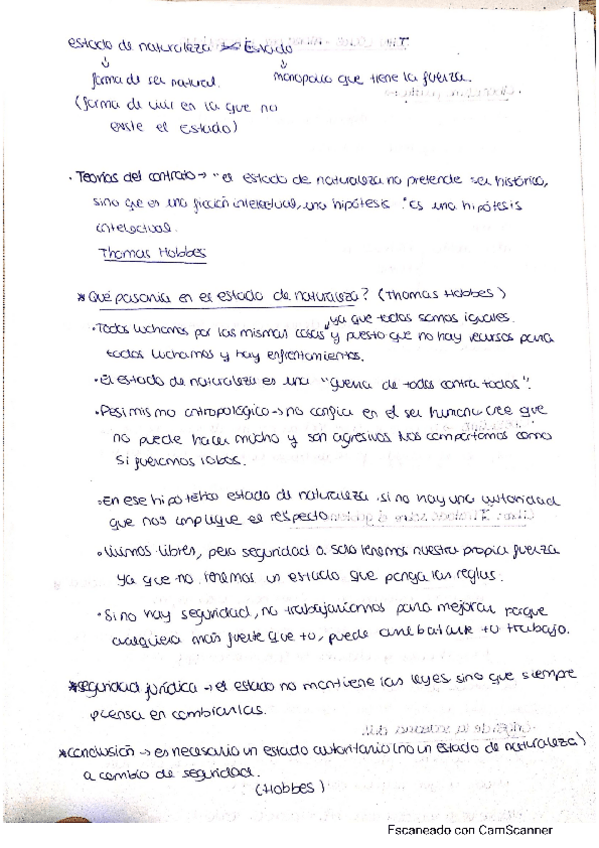 estado de naturaleza <-> Estado
↓ ↓
forma de ser natural. monopolio que tiene la fuerza.
(forma de vivir en la que no
existe el Estado)
· Teorías del contrato → "el estado de naturaleza no pretende ser histórico,
sino que es una ficción intelectual, una hipótesis". Es una hipótesis
intelectual.
Thomas Hobbes
* Qué pasaría en el estado de naturaleza? (Thomas Hobbes)
ya que todos somos iguales.
· Todos luchamos por las mismas cosas y puesto que no hay recursos para
todos luchamos y hay enfrentamientos.
· El estado de naturaleza es una "guerra de todos contra todos".
· Pesimismo antropológico → no confía en el ser humano cree que
no puede hacer mucho y son agresivos. Nos comportamos como
si fueramos lobos.
· En ese hipotético estado de naturaleza si no hay una autoridad
que nos implique el respecto
· Vivimos libres, pero seguridad 0. Solo tenemos nuestra propia fuerza
ya que no tenemos un estado que ponga las reglas.
· Si no hay seguridad, no trabajaríamos para mejorar porque
cualquiera más fuerte que tu, puede arrebatarte tu trabajo.
* seguridad jurídica → el estado no mantiene las leyes sino que siempre
piensa en cambiarlas.
* conclusión → es necesario un estado autoritario (no un estado de naturaleza)
a cambio de seguridad.
(Hobbes)
Escaneado con CamScanner